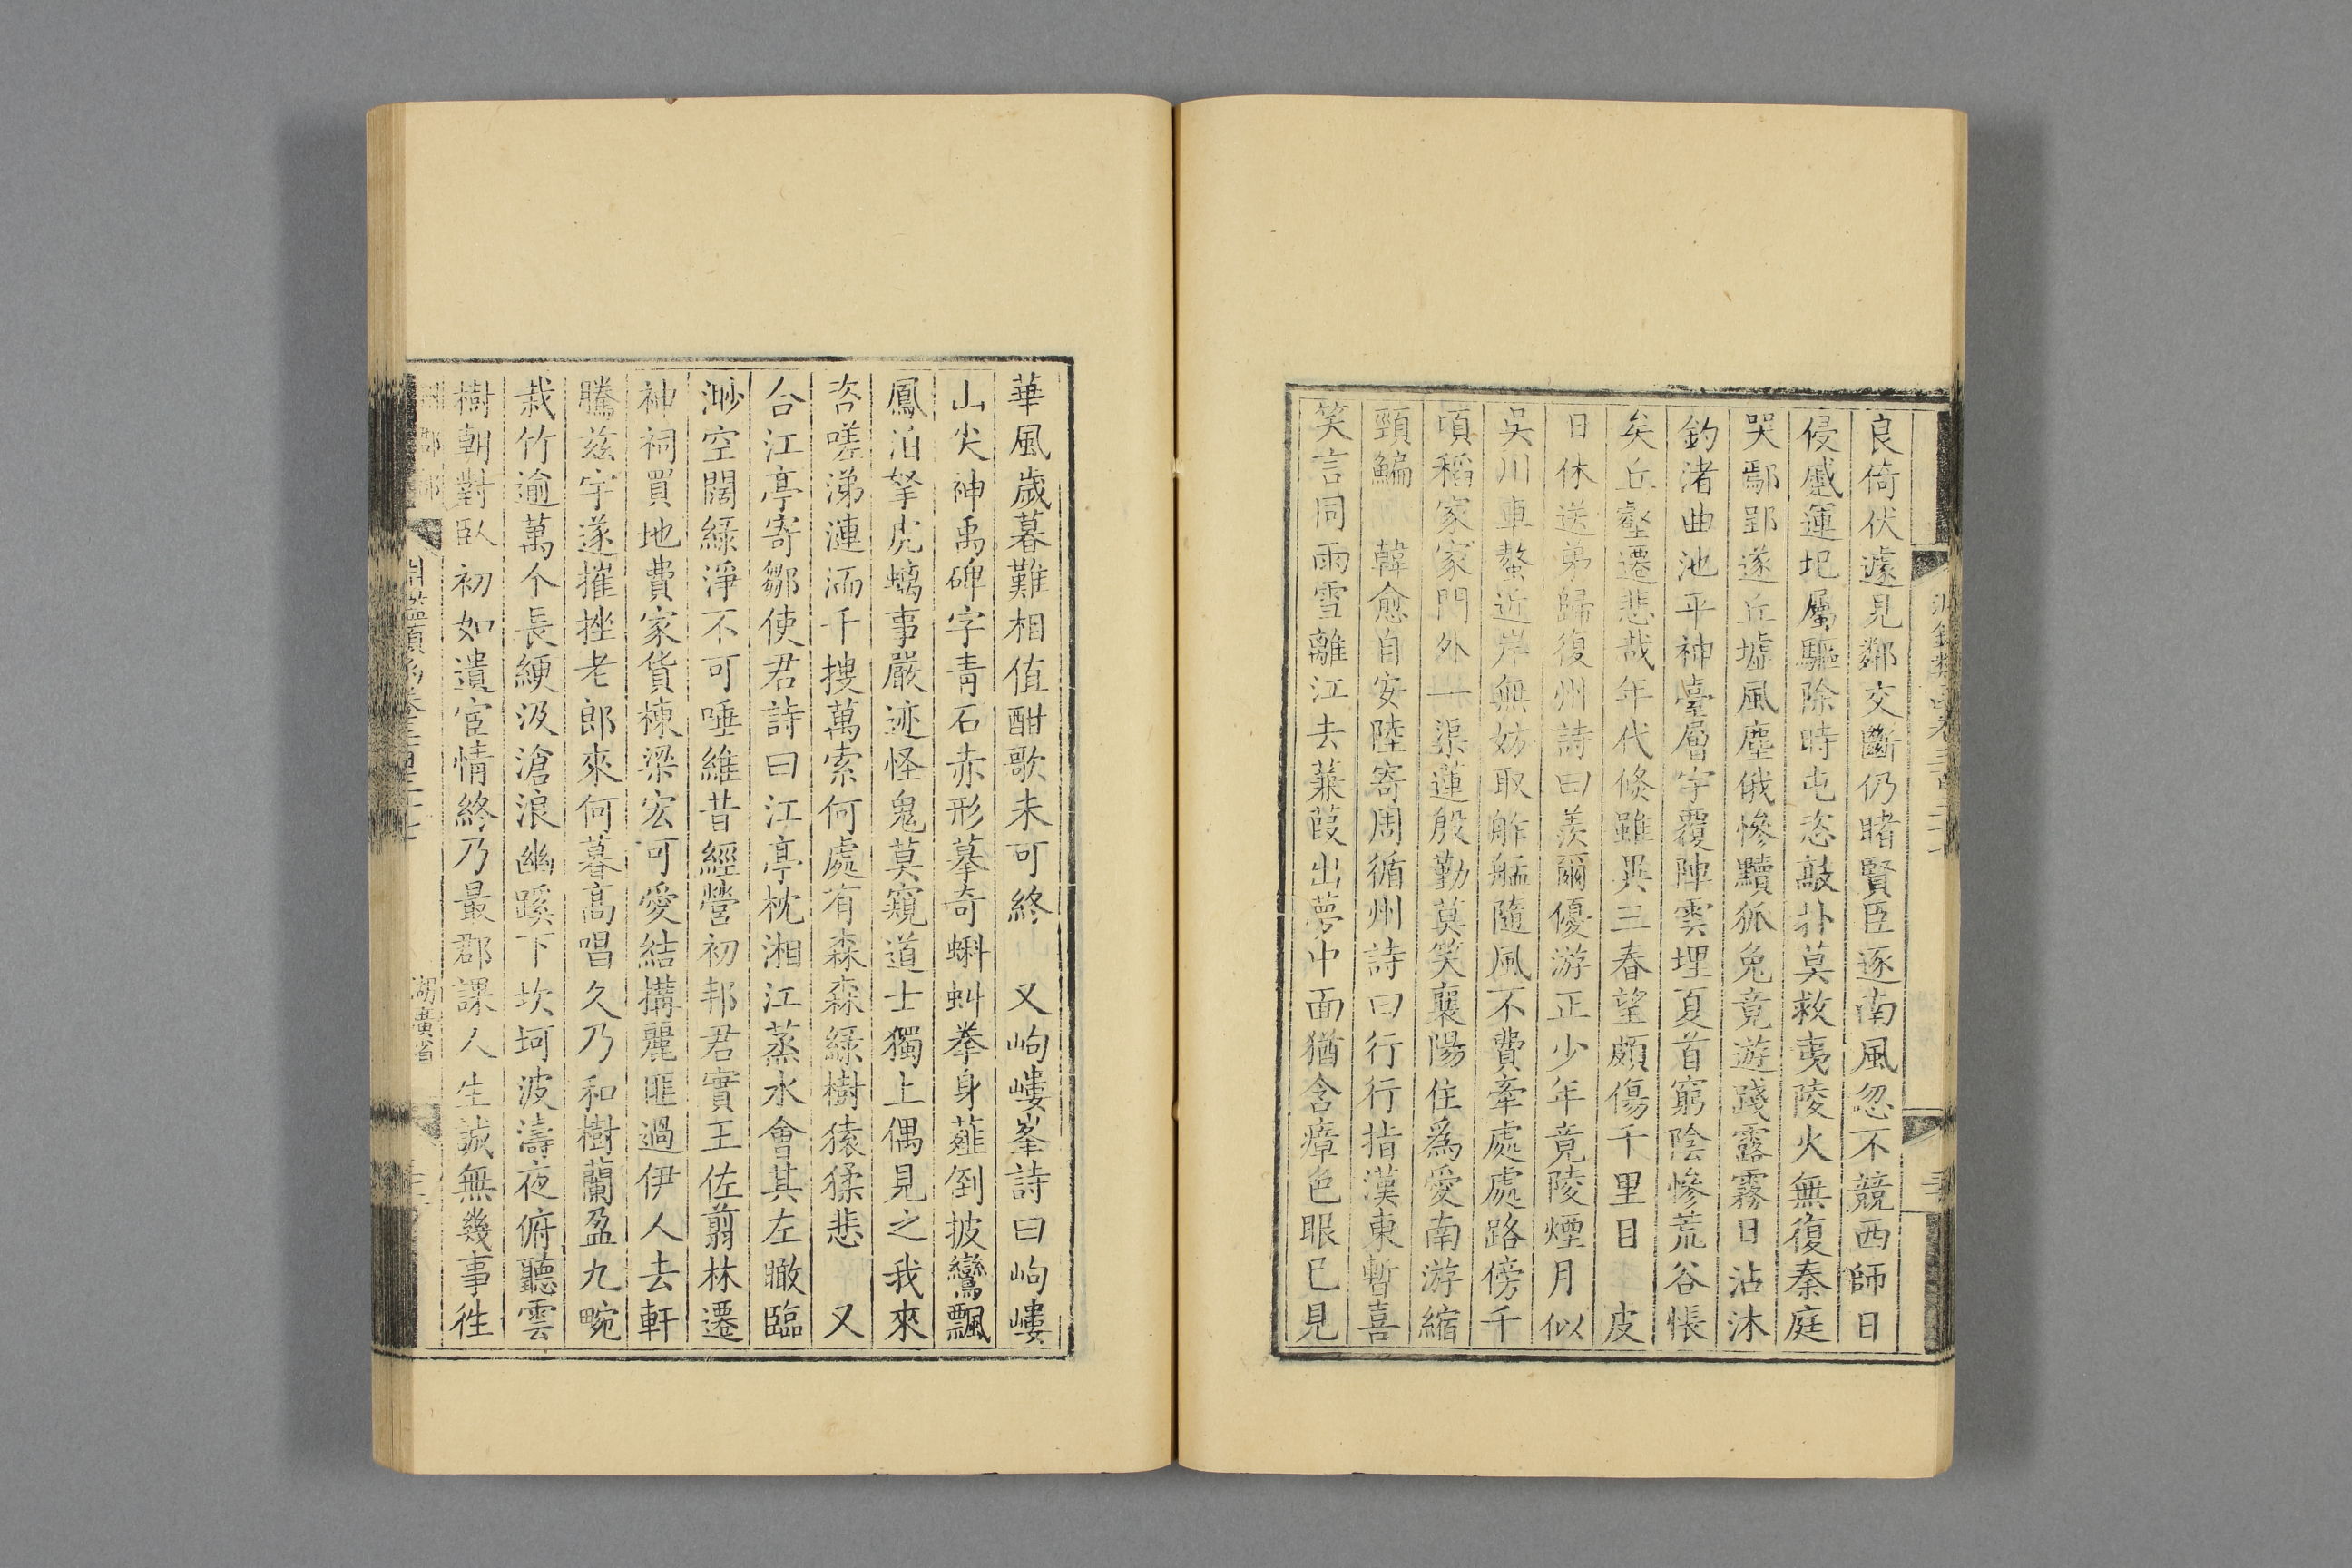 良倚伏遽見鄰交斷仍睹賢臣逐南風忽不競西師日
侵慼運圯屬驅除時屯恣敲扑莫救夷陵火無復秦庭
哭鄢郢遂丘墟風塵俄慘黷狐兔竟遊踐露霧日沾沐
釣渚曲池平神臺層宇覆陣雲埋夏首窮陰慘荒谷悵
矣丘壑遷悲哉年代倏雖異三春望頗傷千里目　皮
日休送弟歸復州詩曰羨爾優游正少年竟陵煙月似
吳川車螯近岸無妨取舴艋隨風不費牽處處路傍千
頃稻家家門外一渠蓮殷勤莫笑襄陽住爲愛南游縮
頸鯿　韓愈自安陸寄周循州詩曰行行指漢東暫喜
笑言同雨雪離江去蒹葭出夢中面猶含瘴色眼已見
華風歲暮難相值酣歌未可終　又岣嶁峯詩曰岣嶁
山尖神禹碑字青石赤形摹奇蝌蚪拳身薤倒披鸞飄
鳳泊拏虎螭事嚴迹怪鬼莫窺道士獨上偶見之我來
咨嗟涕漣洏千搜萬索何處有森森綠樹猿猱悲　又
合江亭寄鄒使君詩曰江亭枕湘江蒸水會其左瞰臨
渺空闊綠淨不可唾維昔經營初邦君實王佐翦林遷
神祠買地費家貨棟梁宏可愛結搆麗匪過伊人去軒
騰茲宇遂摧挫老郎來何暮高唱久乃和樹蘭盈九畹
栽竹逾萬个長綆汲滄浪幽蹊下坎坷波濤夜俯聽雲
樹朝對臥初如遺宦情終乃最郡課人生誠無幾事徃
州郡部
淵鑑類函卷三百三十七
湖廣省